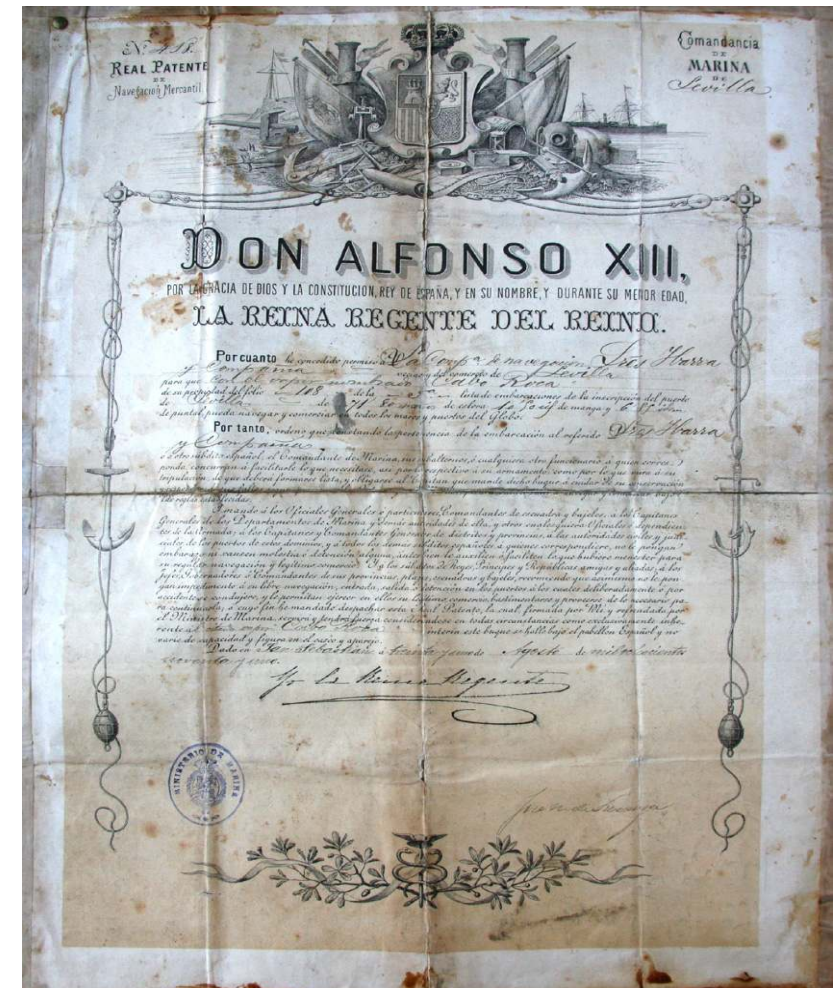 Nº 418.
REAL PATENTE
DE
Navegación Mercantil.
Comandancia
DE
MARINA
DE
Sevilla
DON ALFONSO XIII,
POR LA GRACIA DE DIOS Y LA CONSTITUCION, REY DE ESPAÑA, Y EN SU NOMBRE, Y DURANTE SU MENOR EDAD,
LA REINA REGENTE DEL REINO.
Por cuanto he concedido permiso á La Compª de navegacion, Sres Ibarra
y Compañia vecino y del comercio de Sevilla
para que con el vapor nombrado Cabo Roca
de su propiedad del folio 108 de la 3ª lista de embarcaciones de la inscripcion del puerto
de Sevilla de 78 de eslora 10 de manga y 6
de puntal, pueda navegar y comerciar en todos los mares y puertos del Globo.
Por tanto, ordeno que denotando la pertenencia de la embarcacion al referido Sres Ibarra
y Compañia
ó otro súbdito español, el Comandante de Marina, sus subalternos, ó cualquiera otro funcionario á quien corres-
ponda, concurran á facilitarle lo que necesitare, así por lo respectivo á su armamento como por lo que mira á su
tripulacion, de que deberá formarse lista, y obligarse al Capitan que mande dicho buque á cuidar de su conservacion
las reglas establecidas.
Y mando á los Oficiales Generales ó particulares, Comandantes de escuadra y bajeles, á los Capitanes
Generales de los Departamentos de Marina y demás autoridades de ella, y otros cualesquiera Oficiales dependien-
tes de la Armada; á los Capitanes y Comandantes Generales de distritos y provincias, á las autoridades civiles y judi-
ciales de los puertos de estos dominios, y á todos los demás súbditos españoles á quienes correspondiere, no le pongan
embarazo, ni causen molestia ó detencion alguna, antes bien le auxilien y faciliten lo que hubiere menester para
su regular navegacion y legítimo comercio. Y á los súbditos de Reyes, Príncipes y Repúblicas amigas y aliadas, á los
Jefes, Gobernadores ó Comandantes de sus provincias, plazas, escuadras y bajeles, recomiendo que asimismo no le pon-
gan impedimento á su libre navegacion, entrada, salida ó detencion en los puertos, á los cuales deliberadamente ó por
accidente se condujere, y le permitan ejercer en ellos su legítimo comercio, bastimentarse y proveerse de lo necesario pa-
ra continuarla; á cuyo fin he mandado despachar esta Real Patente, la cual, firmada por Mí, y refrendada por
el Ministro de Marina, servirá y tendrá fuerza considerándose en todas circunstancias como exclusivamente inhe-
rente al citado vapor Cabo Roca interin este buque se halle bajo el pabellon Español y no
varíe de capacidad y figura en el casco y aparejo.
Dado en San Sebastian á treinta y uno de Agosto de mil ochocientos
noventa y uno.
Yo la Reina Regente
MINISTERIO DE MARINA